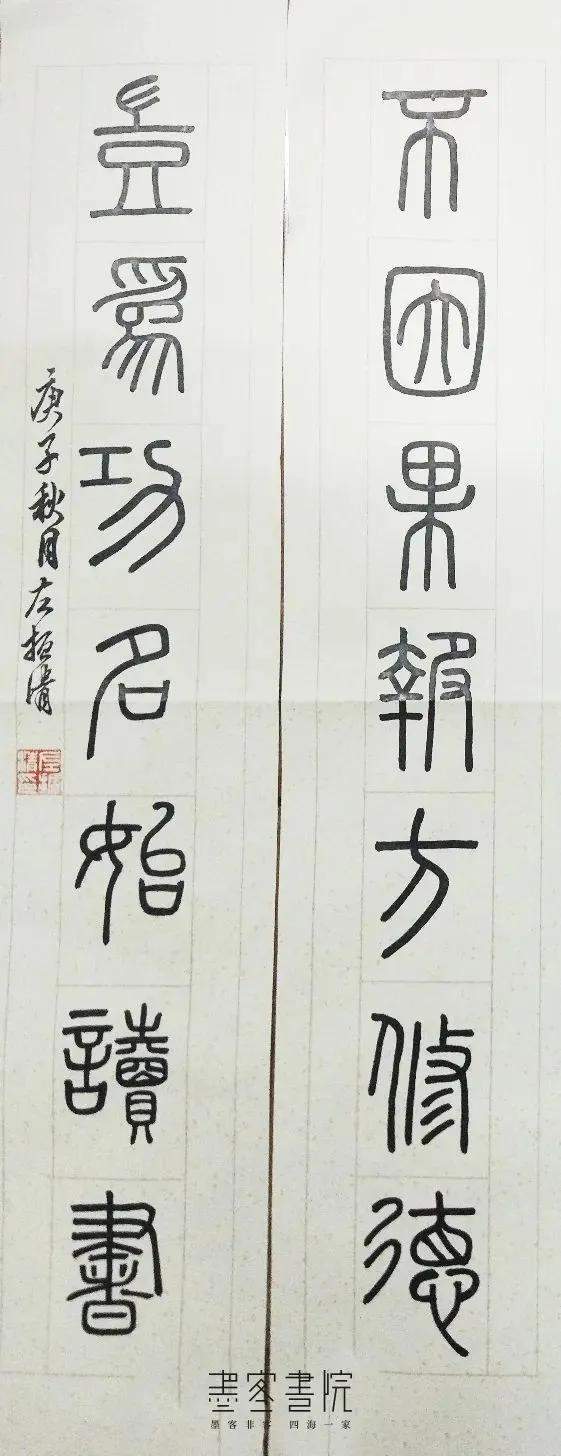 不因果報方修德
豈為功名始讀書
庚子秋月左振清
墨客書院
墨客非客 四海一家